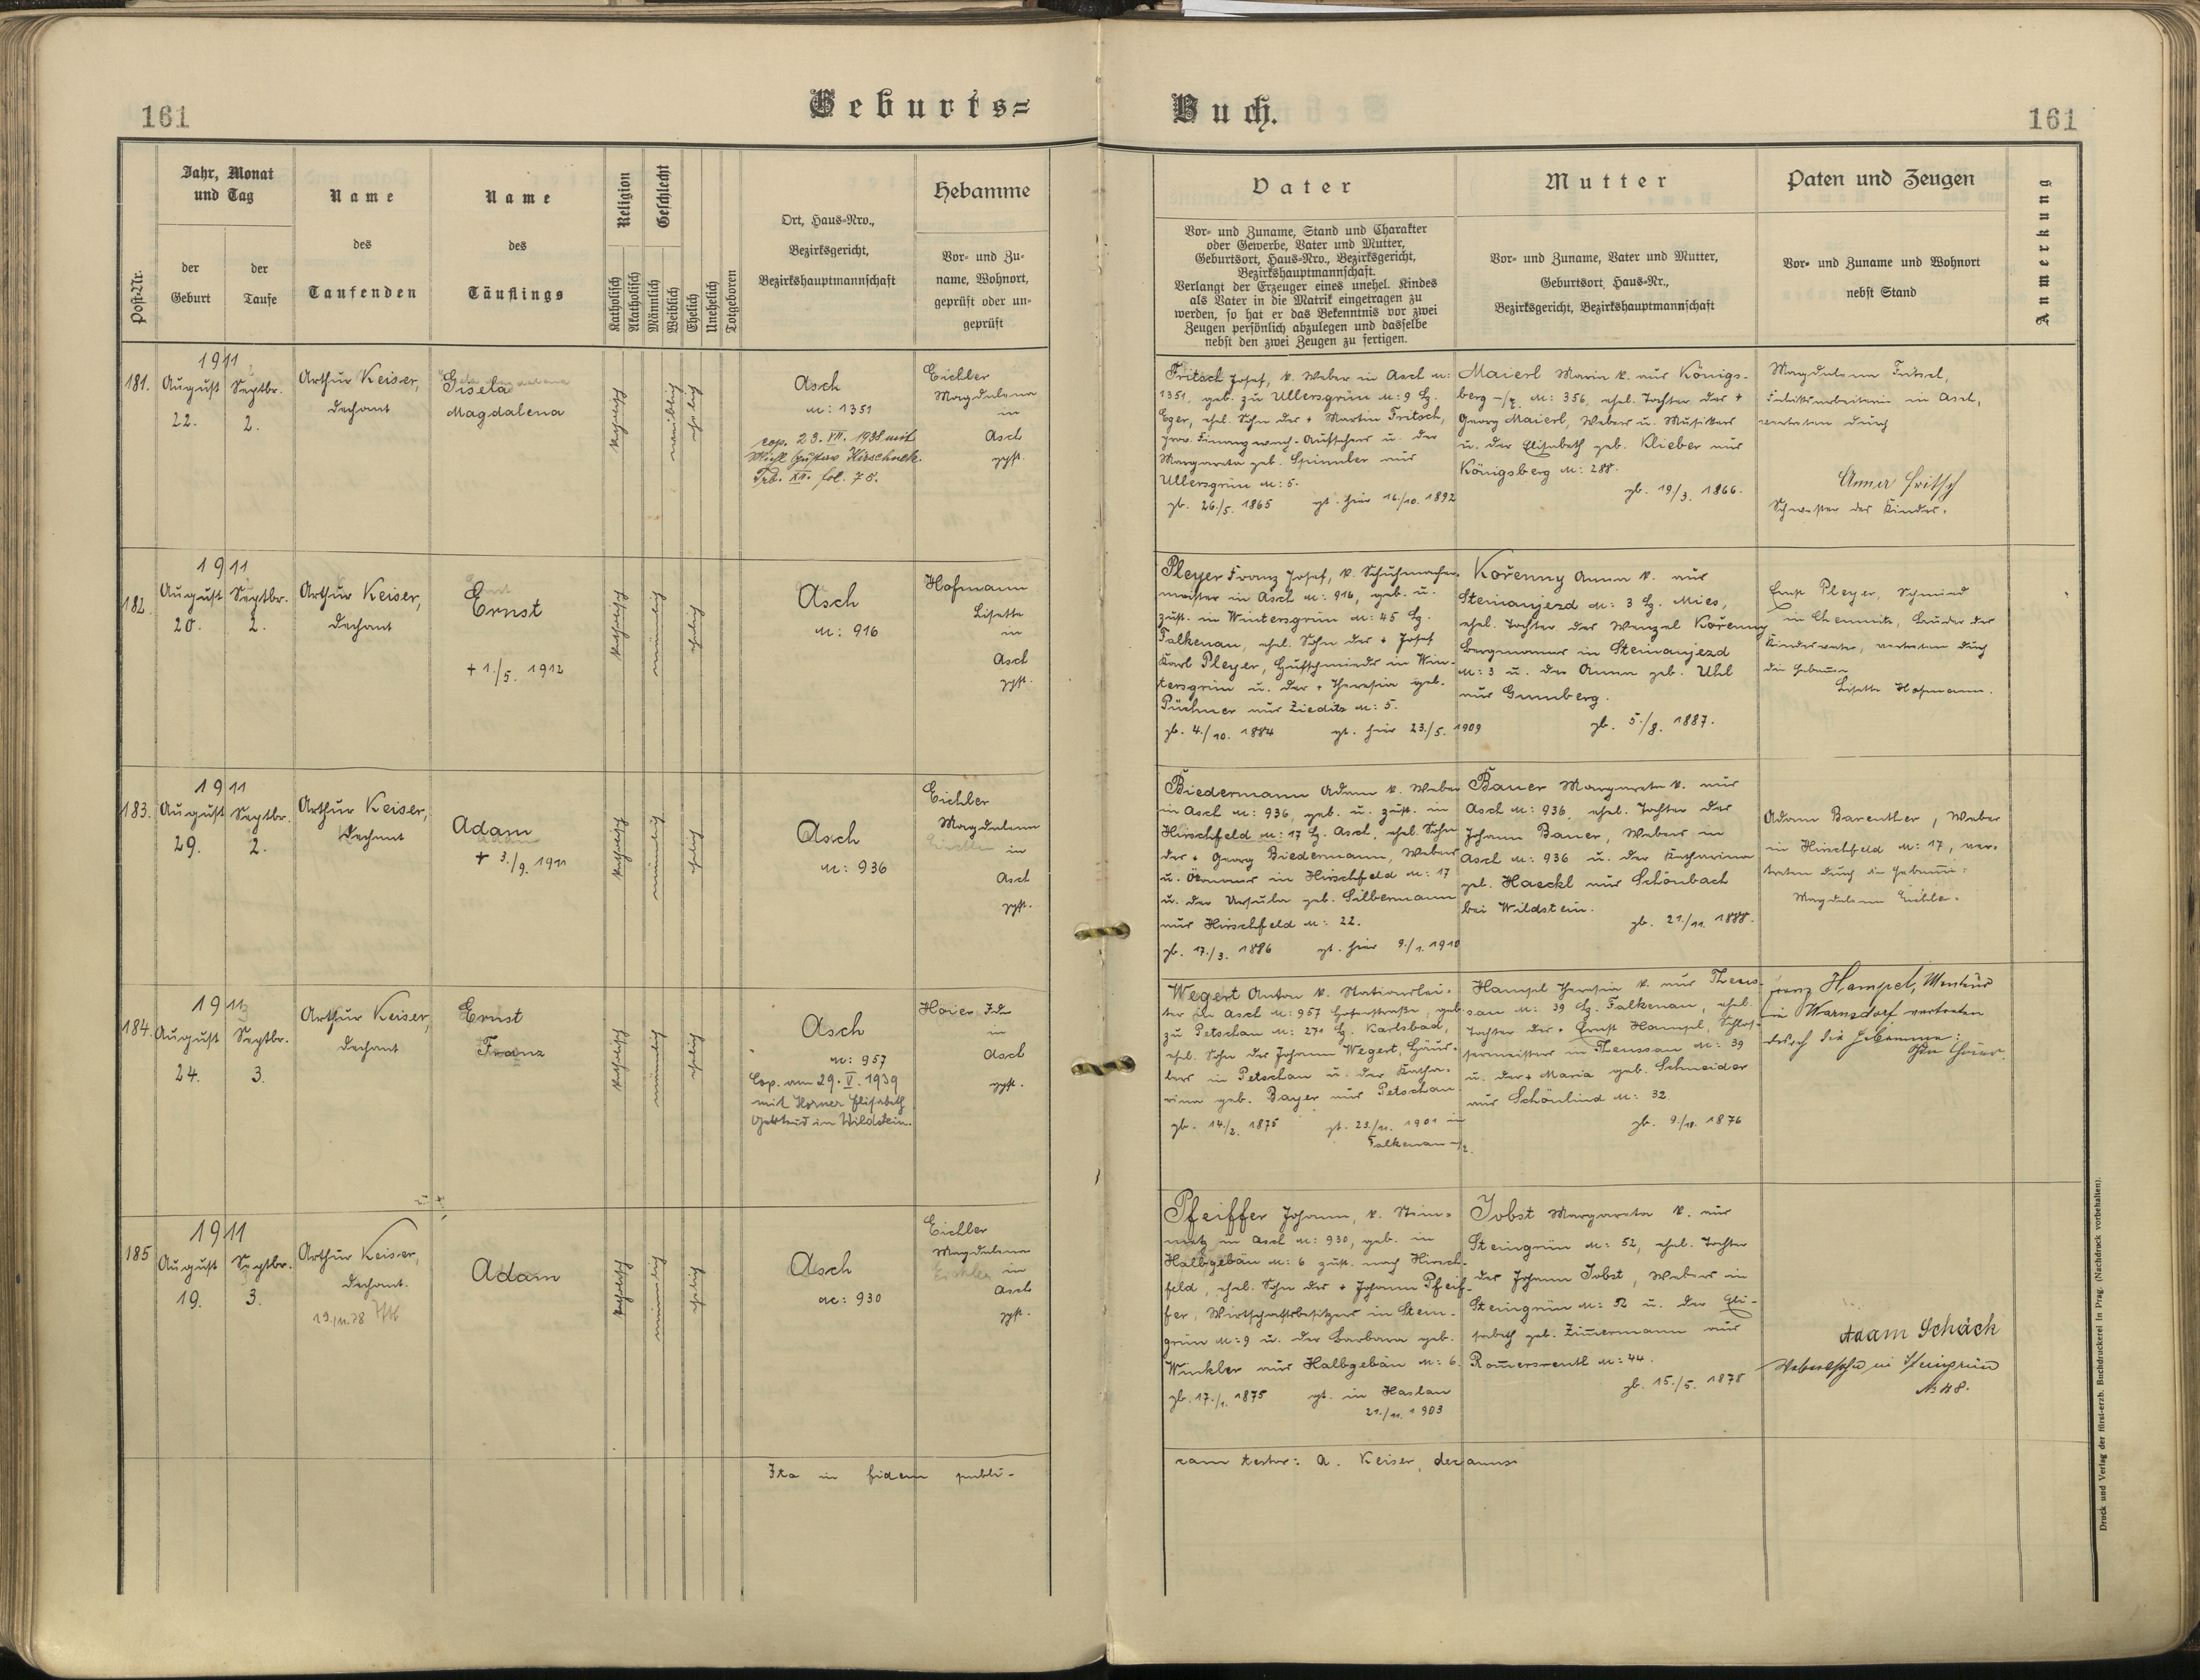 161
Geburts=
Buch.
161
Post-Nr.
Jahr, Monat
und Tag
der
Geburt
der
Taufe
Name
des
Taufenden
Name
des
Täuflings
Religion
Katholisch
Akatholisch
Geschlecht
Männlich
Weiblich
Ehelich
Unehelich
Totgeboren
Ort, Haus=Nro.,
Bezirksgericht,
Bezirkshauptmannschaft
Hebamme
Vor= und Zu=
name, Wohnort,
geprüft oder un=
geprüft
Vater
Vor= und Zuname, Stand und Charakter
oder Gewerbe, Vater und Mutter,
Geburtsort, Haus=Nro., Bezirksgericht,
Bezirkshauptmannschaft.
Verlangt der Erzeuger eines unehel. Kindes
als Vater in die Matrik eingetragen zu
werden, so hat er das Bekenntnis vor zwei
Zeugen persönlich abzulegen und dasselbe
nebst den zwei Zeugen zu fertigen.
Mutter
Vor= und Zuname, Vater und Mutter,
Geburtsort, Haus=Nr.,
Bezirksgericht, Bezirkshauptmannschaft
Paten und Zeugen
Vor= und Zuname und Wohnort
nebst Stand
Anmerkung
181.
1911
August
22.
Septbr.
2.
Arthur Keiser,
Dechant
Gisela
Magdalena
katholisch
weiblich
ehelich
Asch
N: 1351
cop. 23. VII. 1938 mit
Gustav Hirschnek.
Trb. XII. fol. 78.
Eichler
Magdalena
in
Asch
gpft.
Fritsch Josef, k. Weber in Asch N:
1351, geb. zu Ullersgrün N: 9 Bz.
Eger, ehel. Sohn des + Martin Fritsch,
prov. Finanzwach-Aufsehers u. der
Margareta geb. Spinnler aus
Ullersgrün N: 5.
gb. 26./5. 1865 gt. hier 16./10. 1892
Maierl Maria k. aus Königs-
berg a/E. N: 356, ehel. Tochter des +
Georg Maierl, Webers u. Musikers
u. der Elisabeth geb. Klieber aus
Königsberg N: 288.
gb. 19/3. 1866.
Magdalena Fritsch,
Fabriksarbeiterin in Asch,
vertreten durch
Anna Fritsch
Schwester des Kindes.
182.
1911
August
20.
Septbr.
2.
Arthur Keiser,
Dechant
Ernst
+ 1./5. 1912
katholisch
männlich
ehelich
Asch
N: 916
Hofmann
Lisette
in
Asch
gpft.
Pleyer Franz Josef, k. Schuhmacher-
meister in Asch N: 916, geb. u.
zust. in Wintersgrün N: 45 Bz.
Falkenau, ehel. Sohn des + Josef
Karl Pleyer, Hufschmieds in Win-
tersgrün u. der + Theresia geb.
Püchner aus Zieditz N: 5.
gb. 4./10. 1884 gt. hier 23./5. 1909
Kořenny Anna k. aus
Steinaujezd N: 3 Bz. Mies,
ehel. Tochter des Wenzel Kořenny
Bergmannes in Steinaujezd
N: 3 u. der Anna geb. Uhl
aus Gumberg.
gb. 5./8. 1887.
Ernst Pleyer, Schmied
in Chemnitz, Bruder des
Kindesvaters, vertreten durch
die Hebamme
Lisette Hofmann.
183.
1911
August
29.
Septbr.
2.
Arthur Keiser,
Dechant
Adam
+ 3./9. 1911
katholisch
männlich
ehelich
Asch
N: 936
Eichler
Magdalena
in
Asch
gpft.
Biedermann Adam k. Weber
in Asch N: 936, geb. u. zust. in
Hirschfeld N: 17 Bz. Asch, ehel. Sohn
des + Georg Biedermann, Webers
u. Ökonomen in Hirschfeld N: 17
u. der Ursula geb. Silbermann
aus Hirschfeld N: 22.
gb. 17./3. 1886 gt. hier 9./1. 1910
Bauer Margareta k. aus
Asch N: 936, ehel. Tochter des
Johann Bauer, Webers in
Asch N: 936 u. der Katharina
geb. Haeckl aus Schönbach
bei Wildstein.
gb. 21./11. 1888.
Adam Barenther, Weber
in Hirschfeld N: 17, ver-
treten durch die Hebamme:
Magdalena Eichler.
184.
1911
August
24.
Septbr.
3.
Arthur Keiser,
Dechant
Ernst
Franz
katholisch
männlich
ehelich
Asch
N: 957
Cop. am 29. V. 1939
mit Horner Elisabeth
Gertrud in Wildstein.
Hoier Ida
in
Asch
gpft.
Wegert Anton k. Stationslei-
ter in Asch N: 957 Hoferstraße, geb.
zu Petschau N: 271 Bz. Karlsbad,
ehel. Sohn des Johann Wegert, Häus-
lers in Petschau u. der Katha-
rina geb. Bayer aus Petschau
gb. 14./2. 1875 gt. 23./11. 1901 in
Falkenau a/E.
Hampl Theresia k. aus Theus-
sau N: 39 Bz. Falkenau, ehel.
Tochter des + Ernst Hampl, Schlos-
sermeisters in Theussau N: 39
u. der + Maria geb. Schneider
aus Schönlind N: 32.
gb. 9./10. 1876
Franz Hampel, Monteur
in Warnsdorf vertreten
durch die Hebamme:
Ida Hoier.
185
1911
August
19.
Septbr.
3.
Arthur Keiser,
Dechant.
19.11.78
Adam
katholisch
männlich
ehelich
Asch
N: 930
Eichler
Magdalena
in
Asch
gpft.
Pfeiffer Johann, k. Stein-
metz in Asch N: 930, geb. in
Halbgebäu N: 6 zust. nach Hirsch-
feld, ehel. Sohn des + Johann Pfeif-
fer, Wirtschaftsbesitzers in Stein-
grün N: 9 u. der Barbara geb.
Winkler aus Halbgebäu N: 6.
gb. 17./1. 1875 gt. in Haslau
21./11. 1903
Jobst Margareta k. aus
Steingrün N: 52, ehel. Tochter
des Johann Jobst, Webers in
Steingrün N: 52 u. der Eli-
sabeth geb. Zim̄ermann aus
Rom̄ersreutl N: 44.
gb. 15./5. 1878
Adam Schäck
Weberssohn in Steingrün
N: 48.
Ita in fidem publi-
cam testor: A. Keiser, decanus
Druck und Verlag der fürst-erzb. Buchdruckerei in Prag. (Nachdruck vorbehalten).